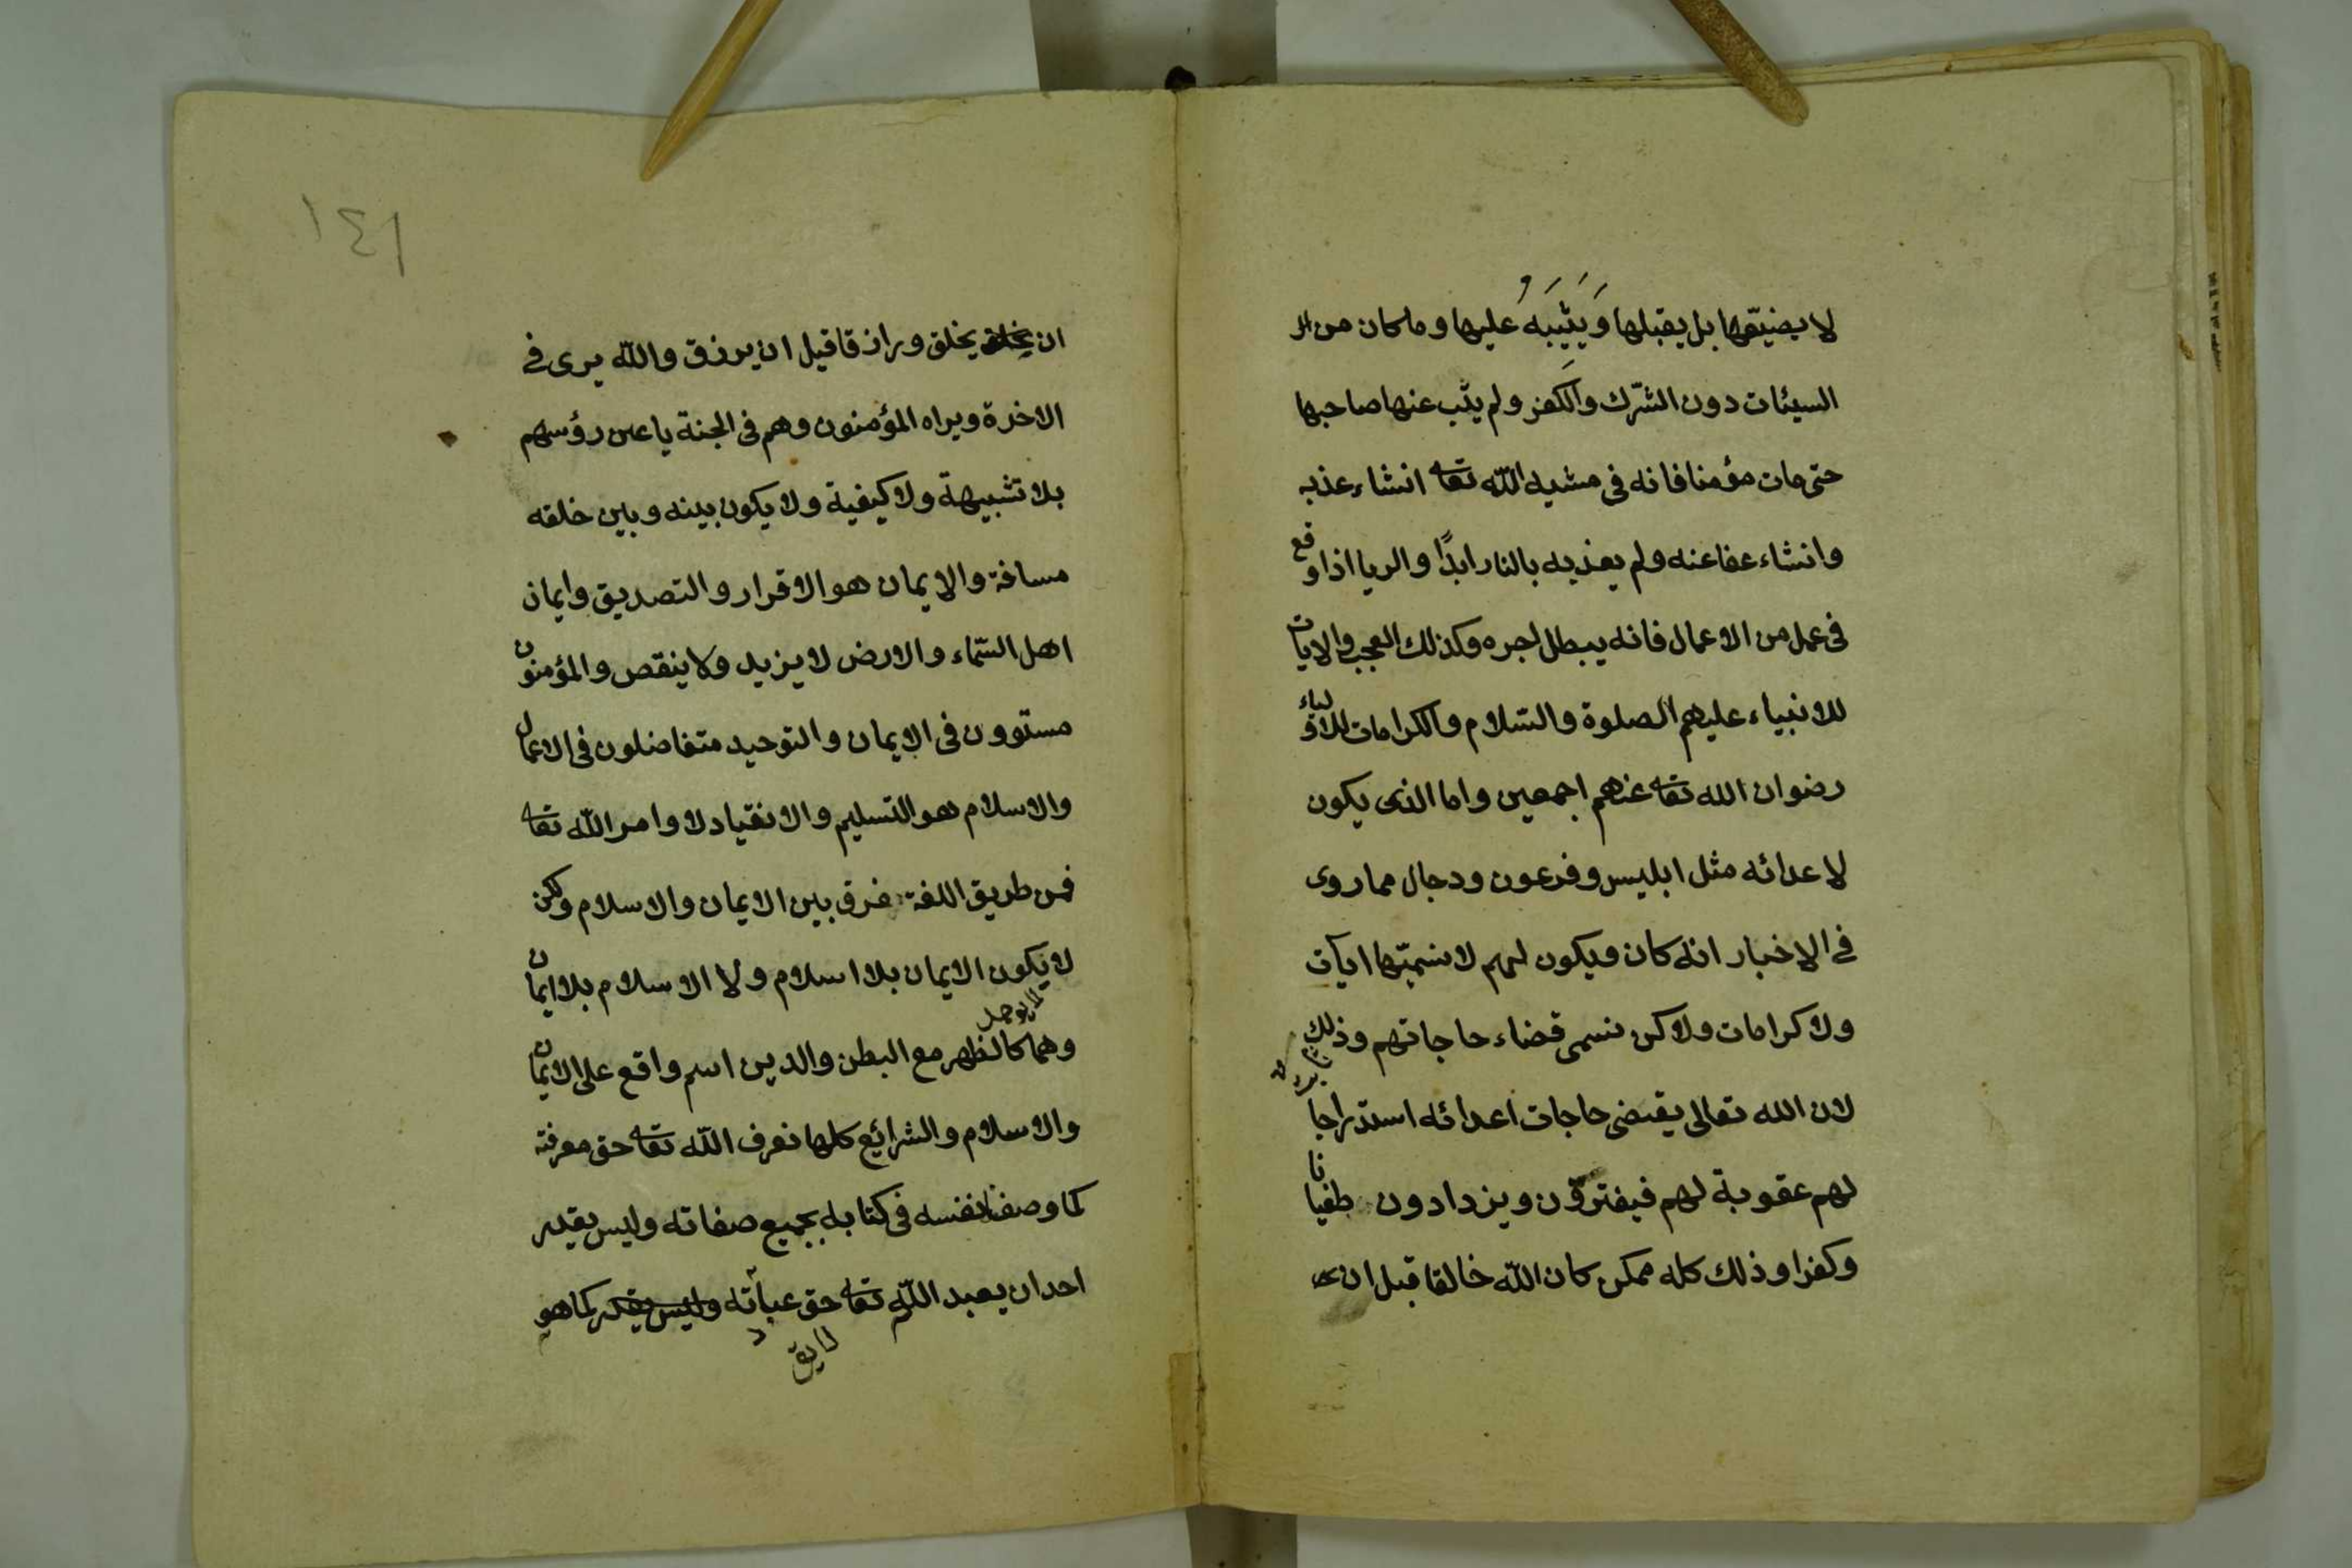 لا يضيّعها بل يقبلها وَيَثِيبَهُ عليها وما كان من ال
السيئات دون الشّرك والكفر ولم يتب عنها صاحبها
حتى مات مؤمنا فانه فى مشيه اللّه تعا انشاء عذبه
وانشاء عفا عنه ولم يعذبه بالنار ابدًا والريا اذا وقع
فى عمل من الاعمال فانه يبطل اجره وكذلك العجب والايات
للانبياء عليهم الصلوة والسّلام والكرامات للاولياء
رضوان الله تعا عنهم اجمعين واما الذى يكون
لاعدائه مثل ابليس وفرعون ودجال مما روى
فى الاخبار انه كان ويكون لهم لا نسمّيها ايآت
ولا كرامات ولاكن نسمى قضاء حاجاتهم وذلك
لان الله تعالى يقضى حاجات اعدائه استدراجا
لهم عقوبة لهم فيغترّون ويزدادون طغيانا
وكفرا وذلك كله ممكن كان اللّه خالقا قبل ان
١٤١
ان يخلق يخلق ورازقا قيل ان يرزق واللّه يرى فى
الاخرة ويراه المؤمنون وهم فى الجنة ياعين رؤسهم
بلا تشبيهة ولا كيفية ولا يكون بينه وبين خلقه
مسافة والايمان هو الاقرار والتصديق وايمان
اهل السّماء والارض لا يزيد ولا ينقص والمؤمنون
مستوون فى الايمان والتوحيد متفاضلون فى الاعمال
والاسلام هو التسليم والانقياد لاوامر اللّه تعا
فمن طريق اللغة فرق بين الايمان والاسلام ولكن
لا يكون الايمان بلا اسلام ولا الاسلام بلا ايمان
وهما كالظهر مع البطن والدين اسم واقع على الايمان
والاسلام والشرائع كلها نعرف اللّه تعا حق معرفته
كما وصف نفسه فى كتابه بجميع صفاته وليس يقدر
احد ان يعبد اللّه تعا حق عبادته وليس يقدر كما هو